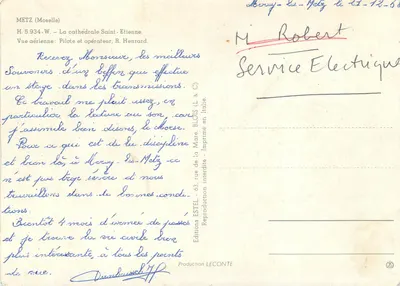 METZ (Moselle)
H. S 934 - W. - La cathédrale Saint-Etienne
Vue aérienne: Pilote et opérateur, R. Henrard
Recevez Monsieur, les meilleurs
Souvenirs d'un biffin que effectue
un stage dans les transmissions.
Ce travail me plait assez, en
particulier la lecture au son, car
j'assimile bien disons, la chose.
Pour ce que est de la discipline
et bien là, à Mercy-les-Metz ce
n'est pas trop sévère et nous
travaillons dans de bonnes condi-
tions.
Bientôt 4 mois d'armée de passés
et je trouve la vie civile bien
plus intéressante, à tous les points
de vue.
Mercy-les-Metz le 21-12-
M Robert
Service Electrique
Editions ESTEL - 63, rue de la Muse, BLOIS (L. & C.)
Reproduction interdite - Imprimé en Italie
Production LECONTE